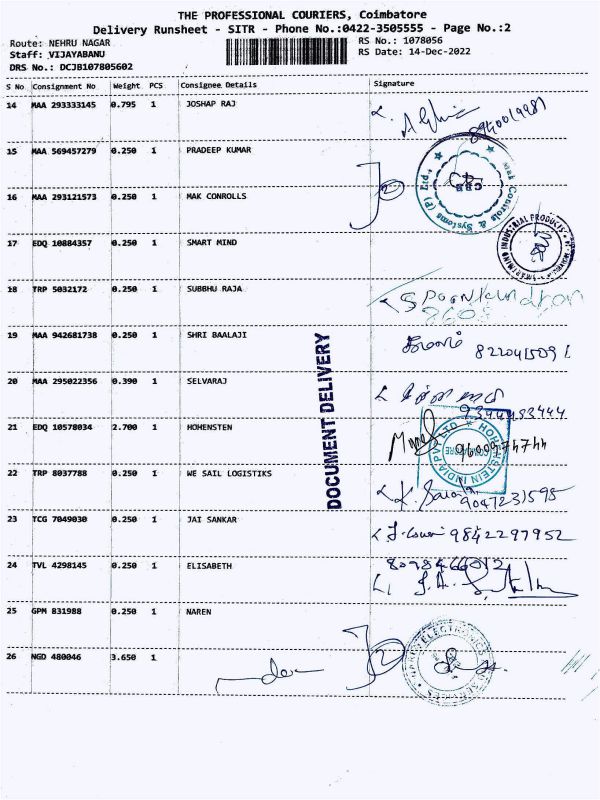 THE PROFESSIONAL COURIERS, Coimbatore
Delivery Runsheet - SITR - Phone No.:0422-3505555 - Page No.:2
Route: NEHRU NAGAR
RS No.: 1078056
Staff: VIJAYABANU
RS Date: 14-Dec-2022
DRS No.: DCJB107805602
S No Consignment No Weight PCS Consignee Details Signature
14 MAA 293333145 0.795 1 JOSHAP RAJ
15 MAA 569457279 0.250 1 PRADEEP KUMAR
16 MAA 293121573 0.250 1 MAK CONROLLS
Mak Controls & Systems (P) Ltd.,
17 EDQ 10884357 0.250 1 SMART MIND
18 TRP 5032172 0.250 1 SUBBHU RAJA
19 MAA 942681738 0.250 1 SHRI BAALAJI
20 MAA 295022356 0.390 1 SELVARAJ
9344483444
21 EDQ 10578034 2.700 1 HOHENSTEN
HOHENSTEIN INDIA
22 TRP 8037788 0.250 1 WE SAIL LOGISTIKS
9047231598
23 TCG 7049030 0.250 1 JAI SANKAR
9842297952
24 TVL 4298145 0.250 1 ELISABETH
8098466012
25 GPM 831988 0.250 1 NAREN
26 NGD 480046 3.650 1
DOCUMENT DELIVERY